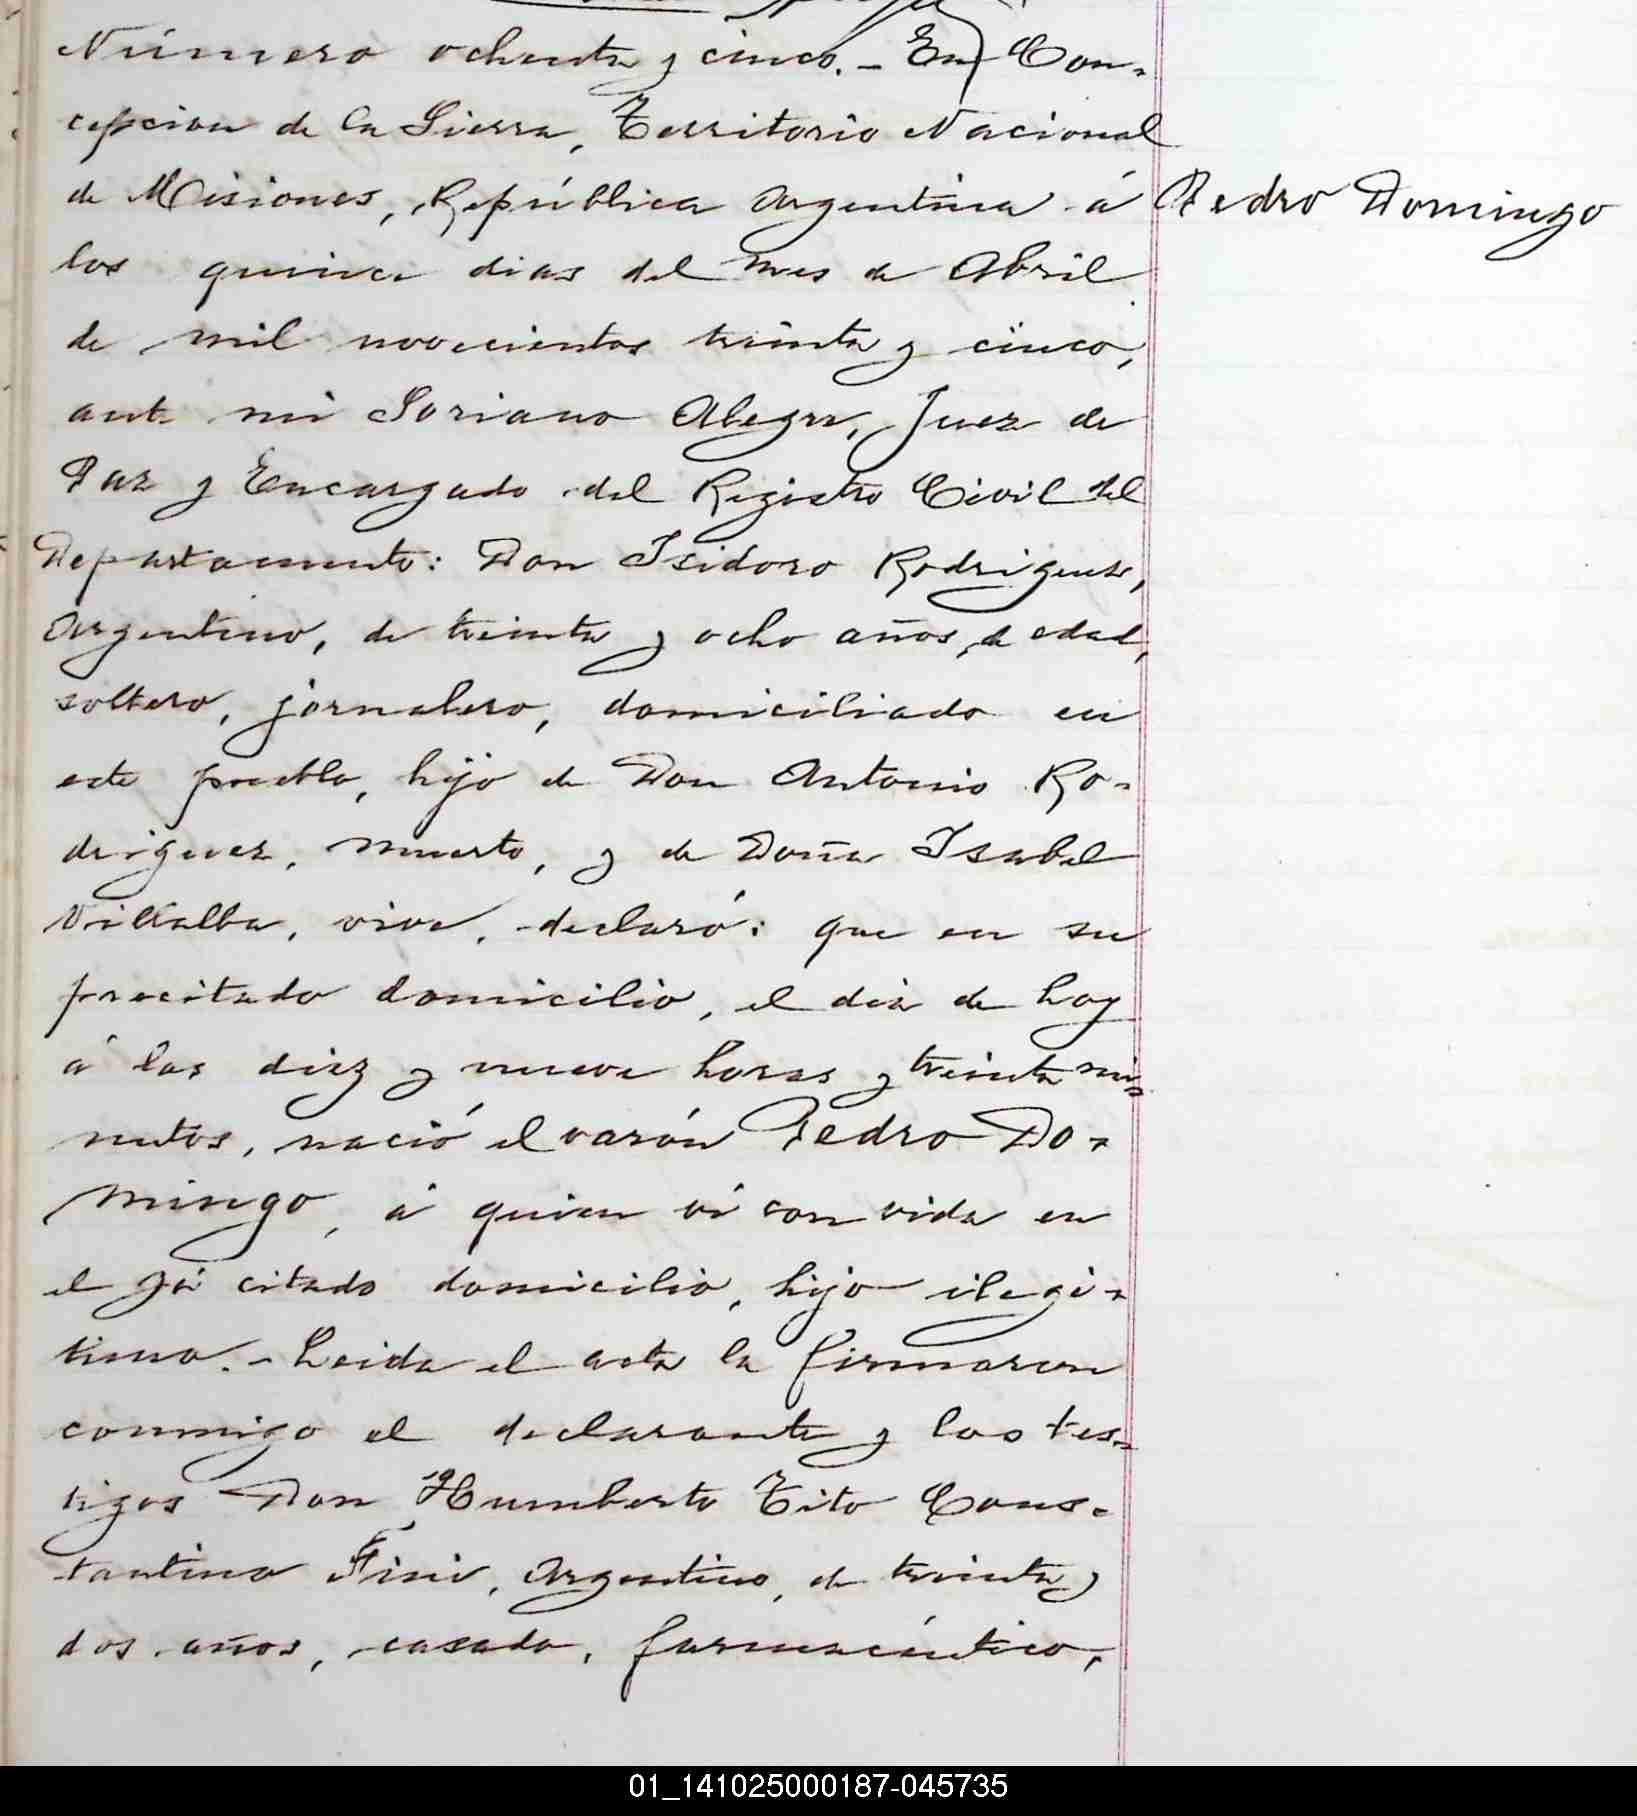 Número ochenta y cinco. - En Con-
cepcion de la Sierra, Territorio Nacional
de Misiones, República Argentina á
Pedro Domingo
los quince dias del mes de Abril
de mil novecientos treinta y cinco,
ante mi Soriano Alegre, Juez de
Paz y Encargado del Registro Civil del
Departamento: Don Isidoro Rodriguez,
Argentino, de treinta y ocho años de edad,
soltero, jornalero, domiciliado en
este pueblo, hijo de Don Antonio Ro-
driguez, muerto, y de Doña Isabel
Villalba, vive, declaró: que en su
precitado domicilio, el dia de hoy
á las diez y nueve horas y treinta mi-
nutos, nació el varón Pedro Do-
mingo, á quien ví con vida en
el yá citado domicilio, hijo ilegi-
timo. - Leida el acta la firmaron
conmigo el declarante y los tes-
tigos Don Humberto Tito Cons-
tantino Fini, Argentino, de treinta y
dos años, casado, farmacéutico,
01_141025000187-045735